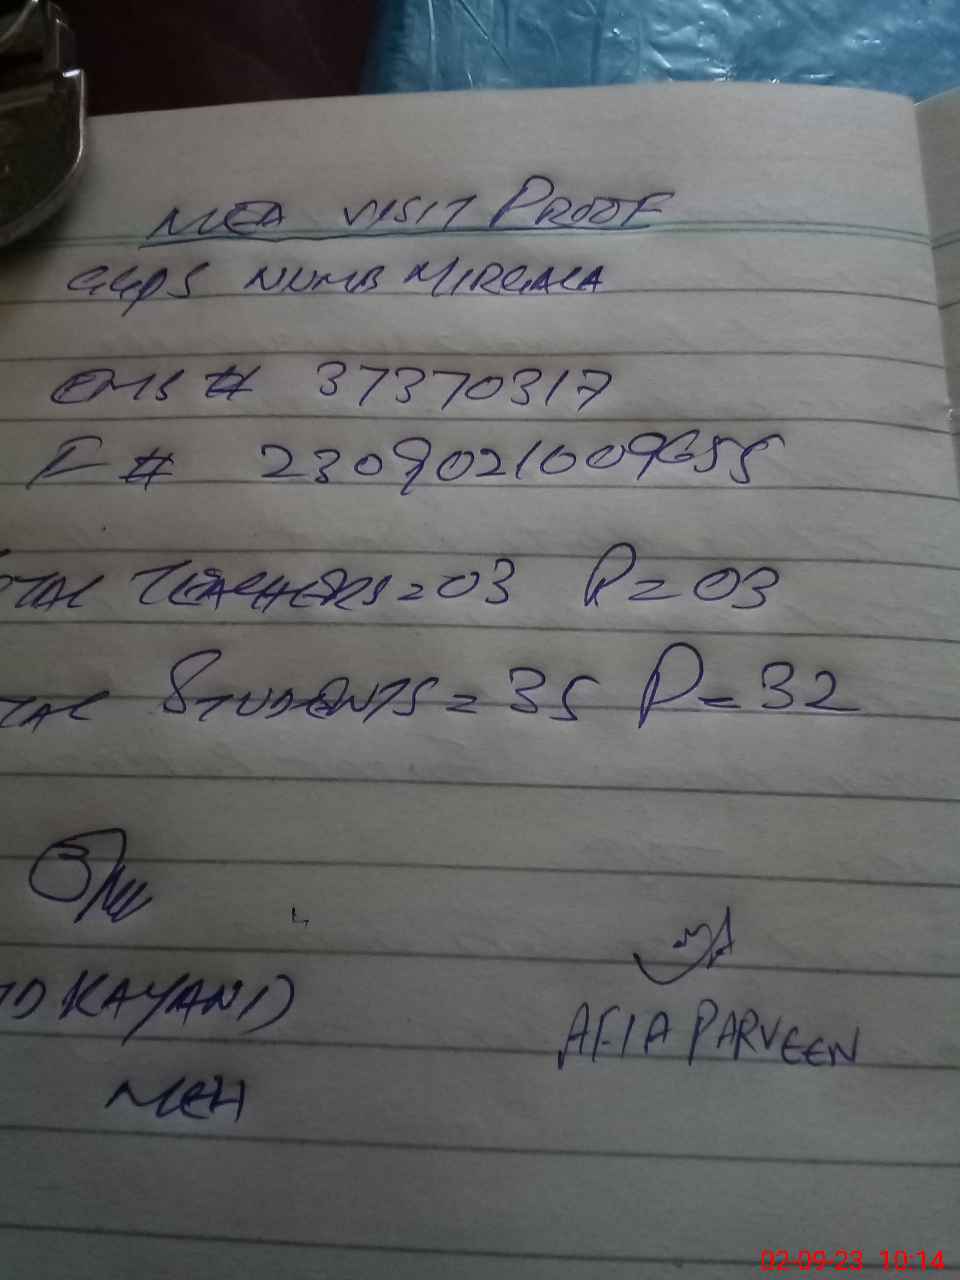 MEA VISIT PROOF
GGPS NUMB MIRGALA
EMIS # 37370317
F # 2309021009655
TAL TEACHERS = 03 P = 03
TAL STUDENTS = 35 P = 32
D KAYANI)
AFIA PARVEEN
MEA
02-09-23 10:14